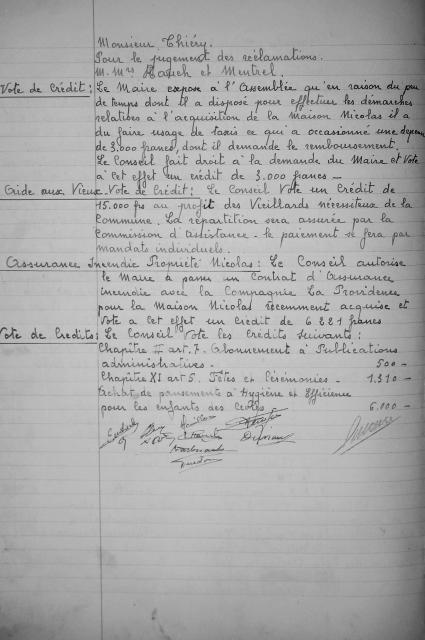 Monsieur Thiéry.
Pour le jugement des réclamations.
M. Mrs Hauch et Mentrel.
Vote de Crédit: Le Maire expose à l'Assemblée qu'en raison du peu
de temps dont il a disposé pour effectuer les démarches
relatives à l'acquisition de la Maison Nicolas il a
du faire usage de taxis ce qui a occasionné une dépense
de 3.000 francs, dont il demande le remboursement.
Le Conseil fait droit à la demande du Maire et Vote
à cet effet un crédit de 3.000 francs –
Aide aux Vieux. Vote de Crédit: Le Conseil Vote un Crédit de
15.000 frs au profit des Vieillards nécessiteux de la
Commune. La répartition sera assurée par la
Commission d'Assistance - le paiement se fera par
mandats individuels.
Assurance Incendie Propriété Nicolas: Le Conseil autorise
le Maire à passer un Contrat d'Assurance
incendie avec la Compagnie La Providence
pour la Maison Nicolas récemment acquise et
Vote à cet effet un Crédit de 6221 francs
Vote de Crédits: Le Conseil Vote les Crédits suivants:
Chapitre II art. 7. Abonnement à Publications
administratives. 500 –
Chapitre XI art 5. Fêtes et Cérémonies. 1.310 –
Achat de pansements à Hygiène et Efficience
pour les enfants des Ecoles 6.000 –